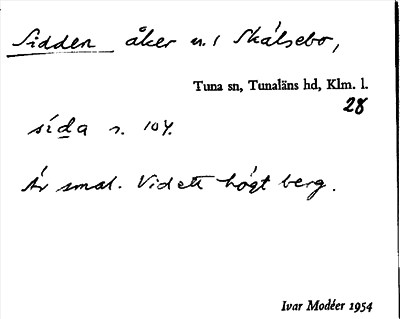 Sidden åker n. 1 Skálsebo,
Tuna sn, Tunaläns hd, Klm. l.
28
sída s. 104.
Är smal. Vid ett högt berg.
Ivar Modéer 1954